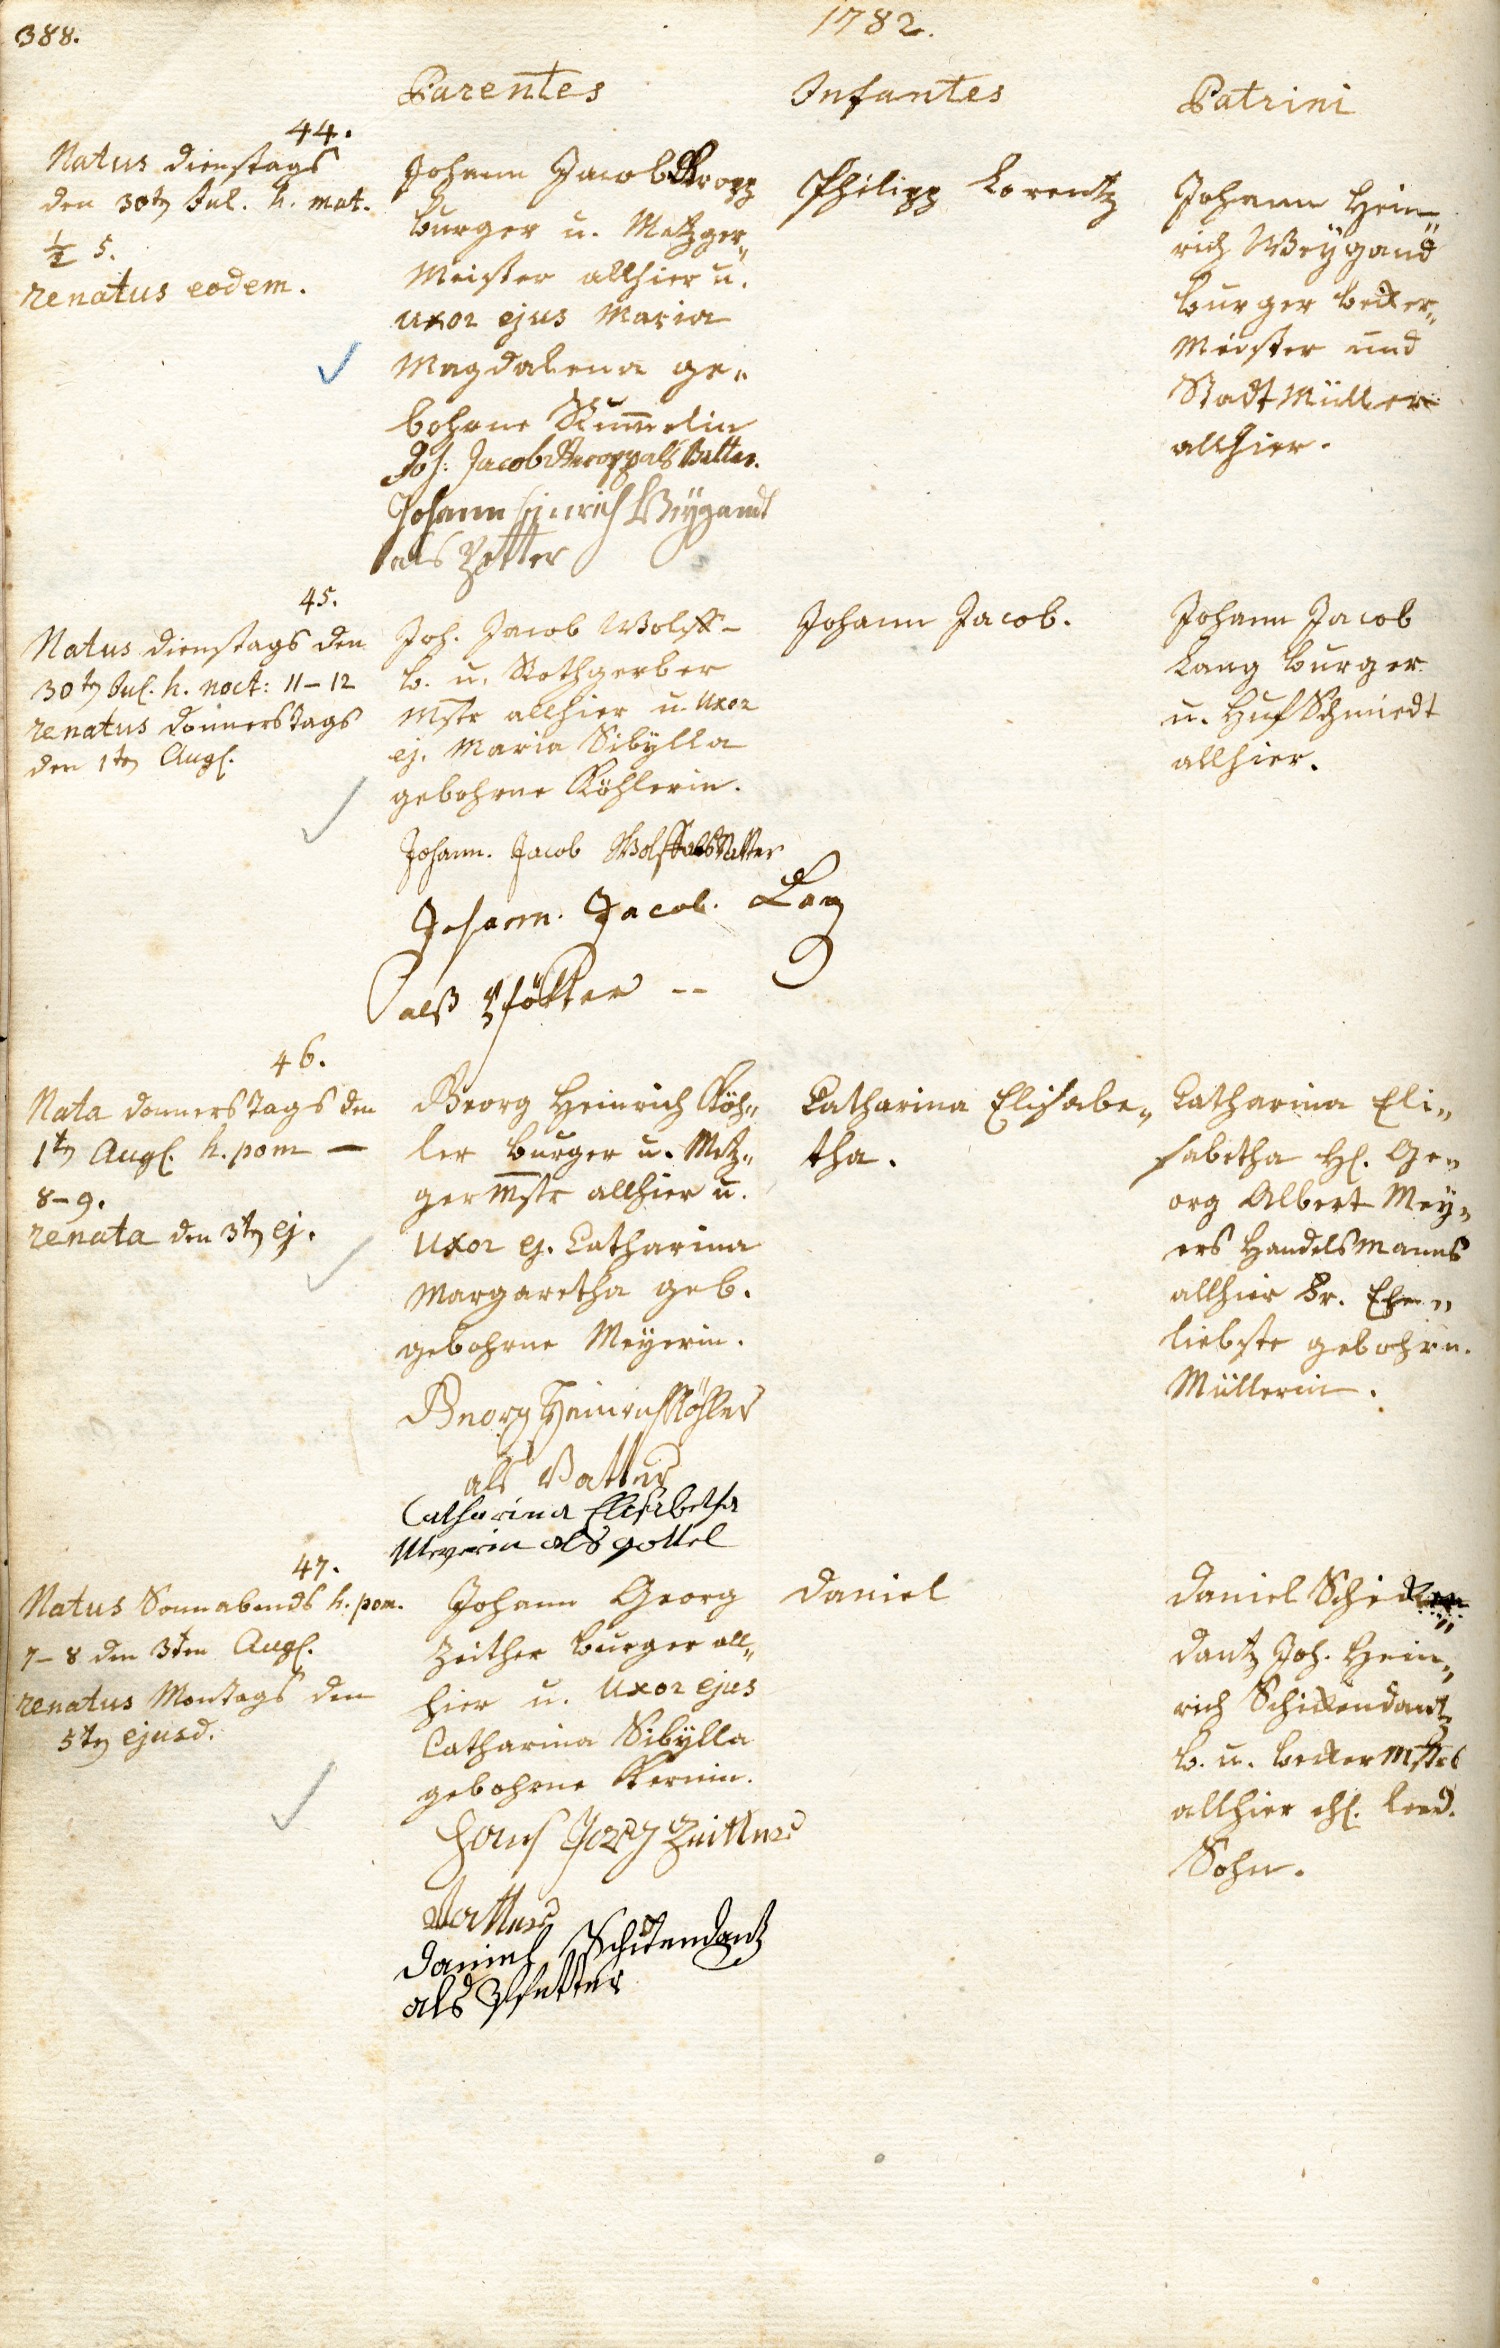 388.
1782.
Parentes
Infantes
Patrini
44.
Natus dienstags
den 30ten Jul. h. mat.
½ 5.
renatus eodem.
Johann Jacob Kropp
burger u. Metzger„
Meister allhier u.
uxor ejus Maria
Magdalena ge„
bohrne Rummelin
Joh: Jacob Kropp als Vatter.
Johann Heinrich Weygandt
als Petter
Philipp Lorentz
Johann Hein„
rich Weygand
burger becker„
Meister und
Stadt Müller
allhier.
45.
Natus dienstags den
30ten Jul. h. noct: 11–12
renatus donnerstags
den 1ten Aug.
Joh. Jacob Wolff–
b. u. Rothgerber
Mstr allhier u. Uxor
ej. Maria Sibÿlla
gebohrne Köhlerin.
Johann. Jacob Wolff als Vatter
Johann. Jacob. Lang
alß Pfötter --
Johann Jacob.
Johann Jacob
Lang burger
u. Huf Schmiedt
allhier.
46.
Nata donnerstags den
1ten Aug. h. pom —
8–9.
renata den 3ten ej.
Georg Heinrich Köh„
ler burger u. Metz„
germstr allhier u.
Uxor ej. Catharina
Margaretha geb.
gebohrne Meÿerin.
Georg Heinrich Köhler
als Vatter
Catharina Elisabetha
Meyerin als gottel
Catharina Elisabe„
tha.
Catharina Eli„
sabetha H. Ge„
org Albert Meÿ„
ers Handelsmanns
allhier Fr. Ehe„
liebste gebohrn.
Müllerin.
47.
Natus Sonnabends h. pom.
7–8 den 3ten Aug.
renatus Montags den
5ten ejusd.
Johann Georg
Zeither burger all„
hier u. Uxor ejus
Catharina Sibÿlla
gebohrne Kernin.
Hans Jorg Zeitter
Vatter
Daniel Schickendantz
als Pfetter
Daniel
Daniel Schicken„
dantz Joh. Hein„
rich Schickendantz
b. u. becker Mstrs
allhier ehl. led.
Sohn.